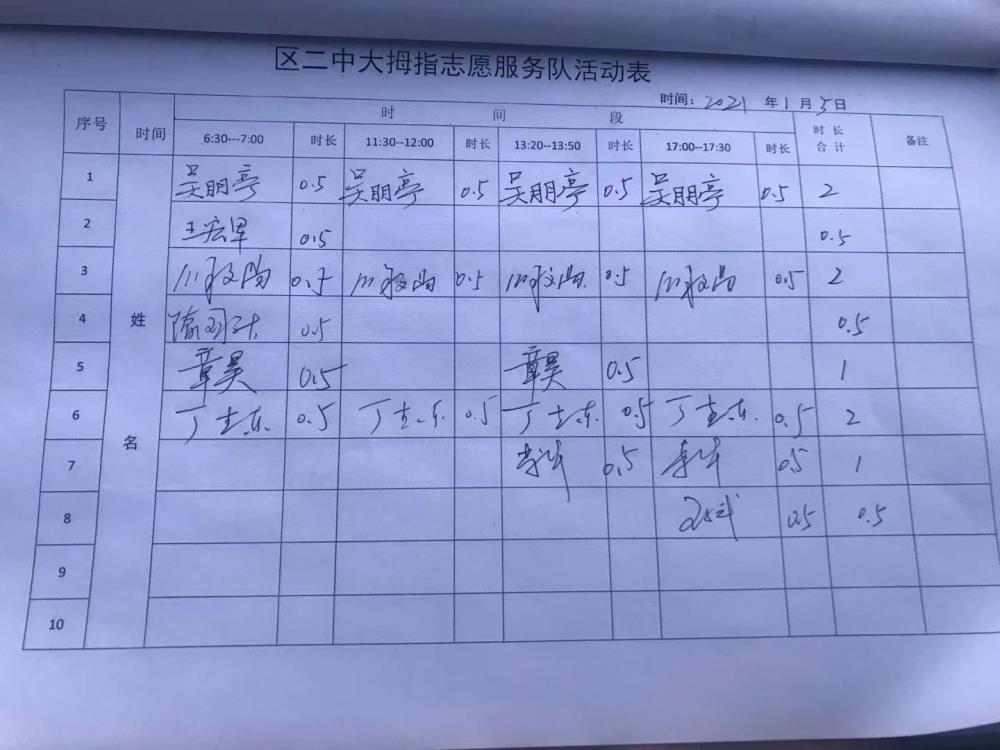 区二中大拇指志愿服务队活动表
时间：2021 年 1 月 5 日
序号 时间 时 间 段 时 长 合 计 备注
6:30---7:00 时长 11:30--12:00 时长 13:20--13:50 时长 17:00--17:30 时长
姓 名
1 吴朋亭 0.5 吴朋亭 0.5 吴朋亭 0.5 吴朋亭 0.5 2
2 王宏军 0.5 0.5
3 0.5 0.5 0.5 0.5 2
4 0.5 0.5
5 章昊 0.5 章昊 0.5 1
6 丁志东 0.5 丁志东 0.5 丁志东 0.5 丁志东 0.5 2
7 0.5 0.5 1
8 0.5 0.5
9
10